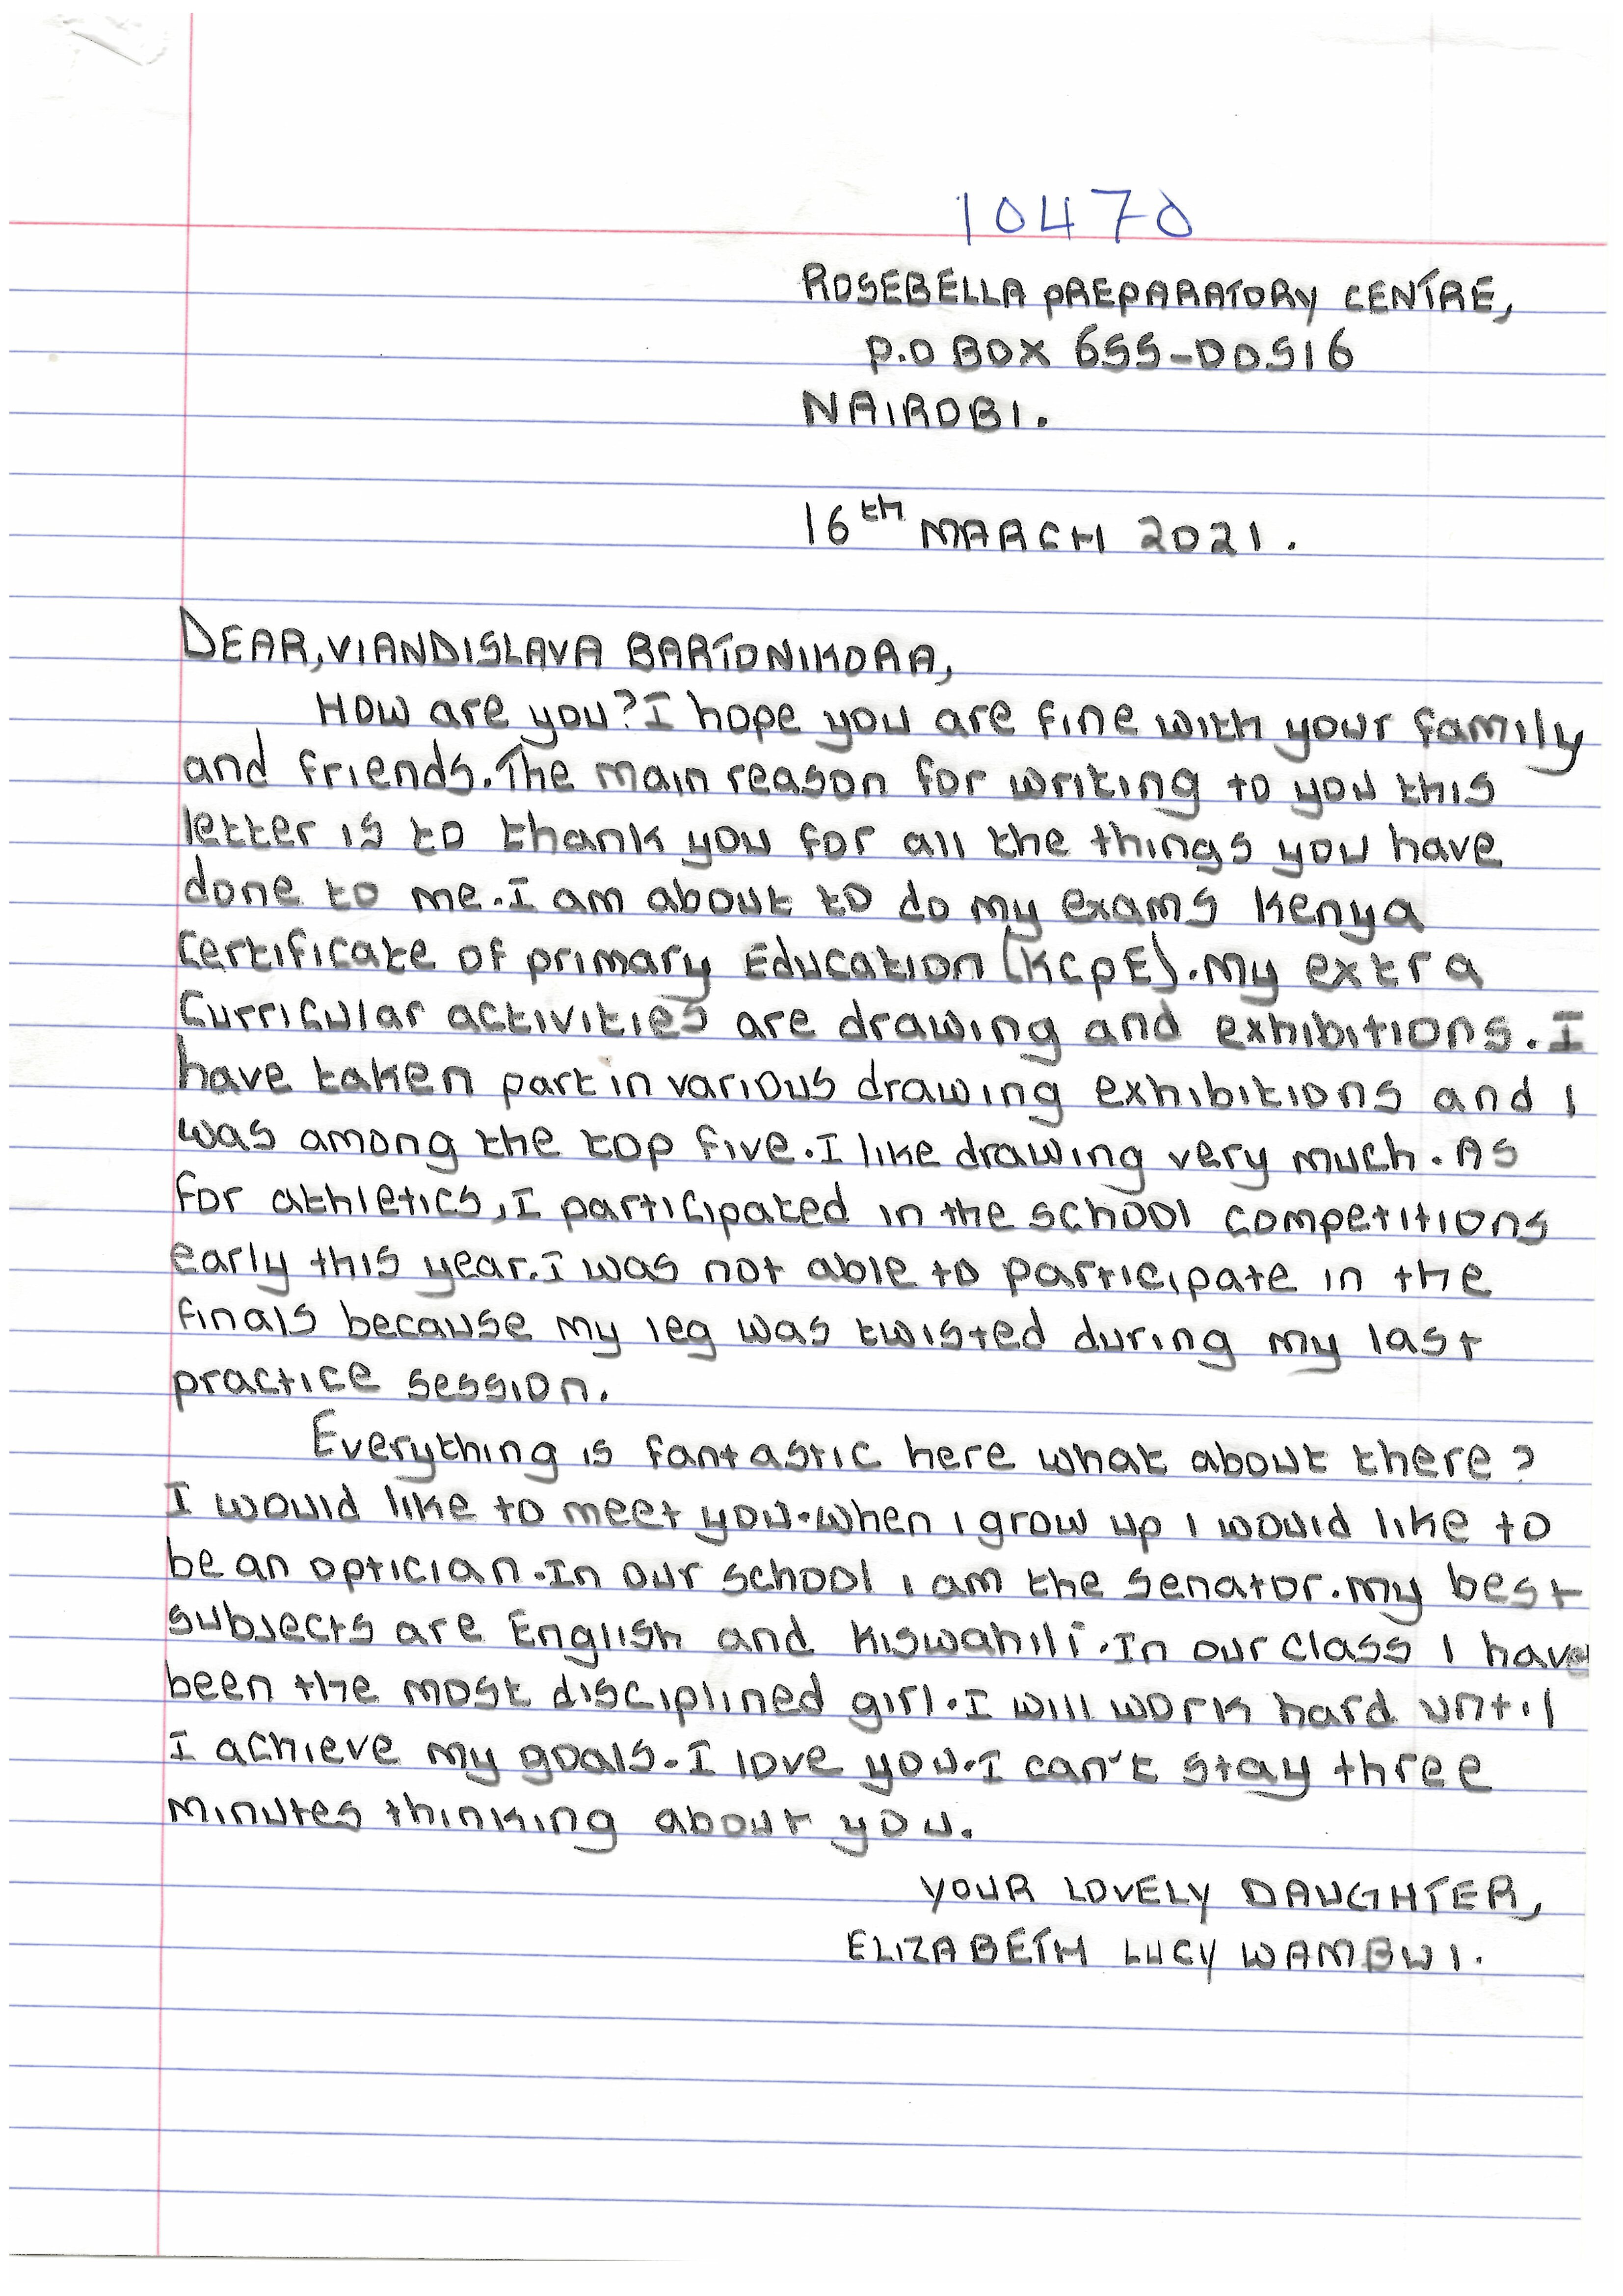 10470
ROSEBELLA PREPARATORY CENTRE,
P.O BOX 655-00516
NAIROBI.
16th MARCH 2021.
DEAR, VIANDISLAVA BARTONIKORA,
How are you? I hope you are fine with your family
and friends. The main reason for writing to you this
letter is to thank you for all the things you have
done to me. I am about to do my exams Kenya
Certificate of primary Education (KCPE). My extra
Curricular activities are drawing and exhibitions. I
have taken part in various drawing exhibitions and I
was among the top five. I like drawing very much. As
for athletics, I participated in the school competitions
early this year. I was not able to participate in the
finals because my leg was twisted during my last
practice session.
Everything is fantastic here what about there?
I would like to meet you. When I grow up I would like to
be an optician. In our school I am the senator. My best
subjects are English and Kiswahili. In our class I have
been the most disciplined girl. I will work hard until
I achieve my goals. I love you. I can't stay three
minutes thinking about you.
YOUR LOVELY DAUGHTER,
ELIZABETH LUCY WAMBUI.